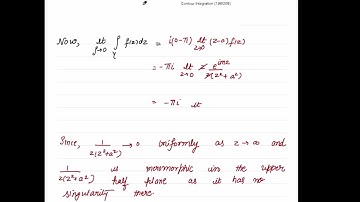 Contour Integration (199/209)
Now, lt ∫ f(z)dz = i(0-π) lt (z-0) f(z)
ρ→0 γ z→0
= -πi lt z e^{imz} / z(z²+a²)
z→0
= -πi lt
Since, 1/z(z²+a²) → 0 uniformly as z → ∞ and
1/z(z²+a²) is meromorphic in the upper
half plane as it has no
singularity there